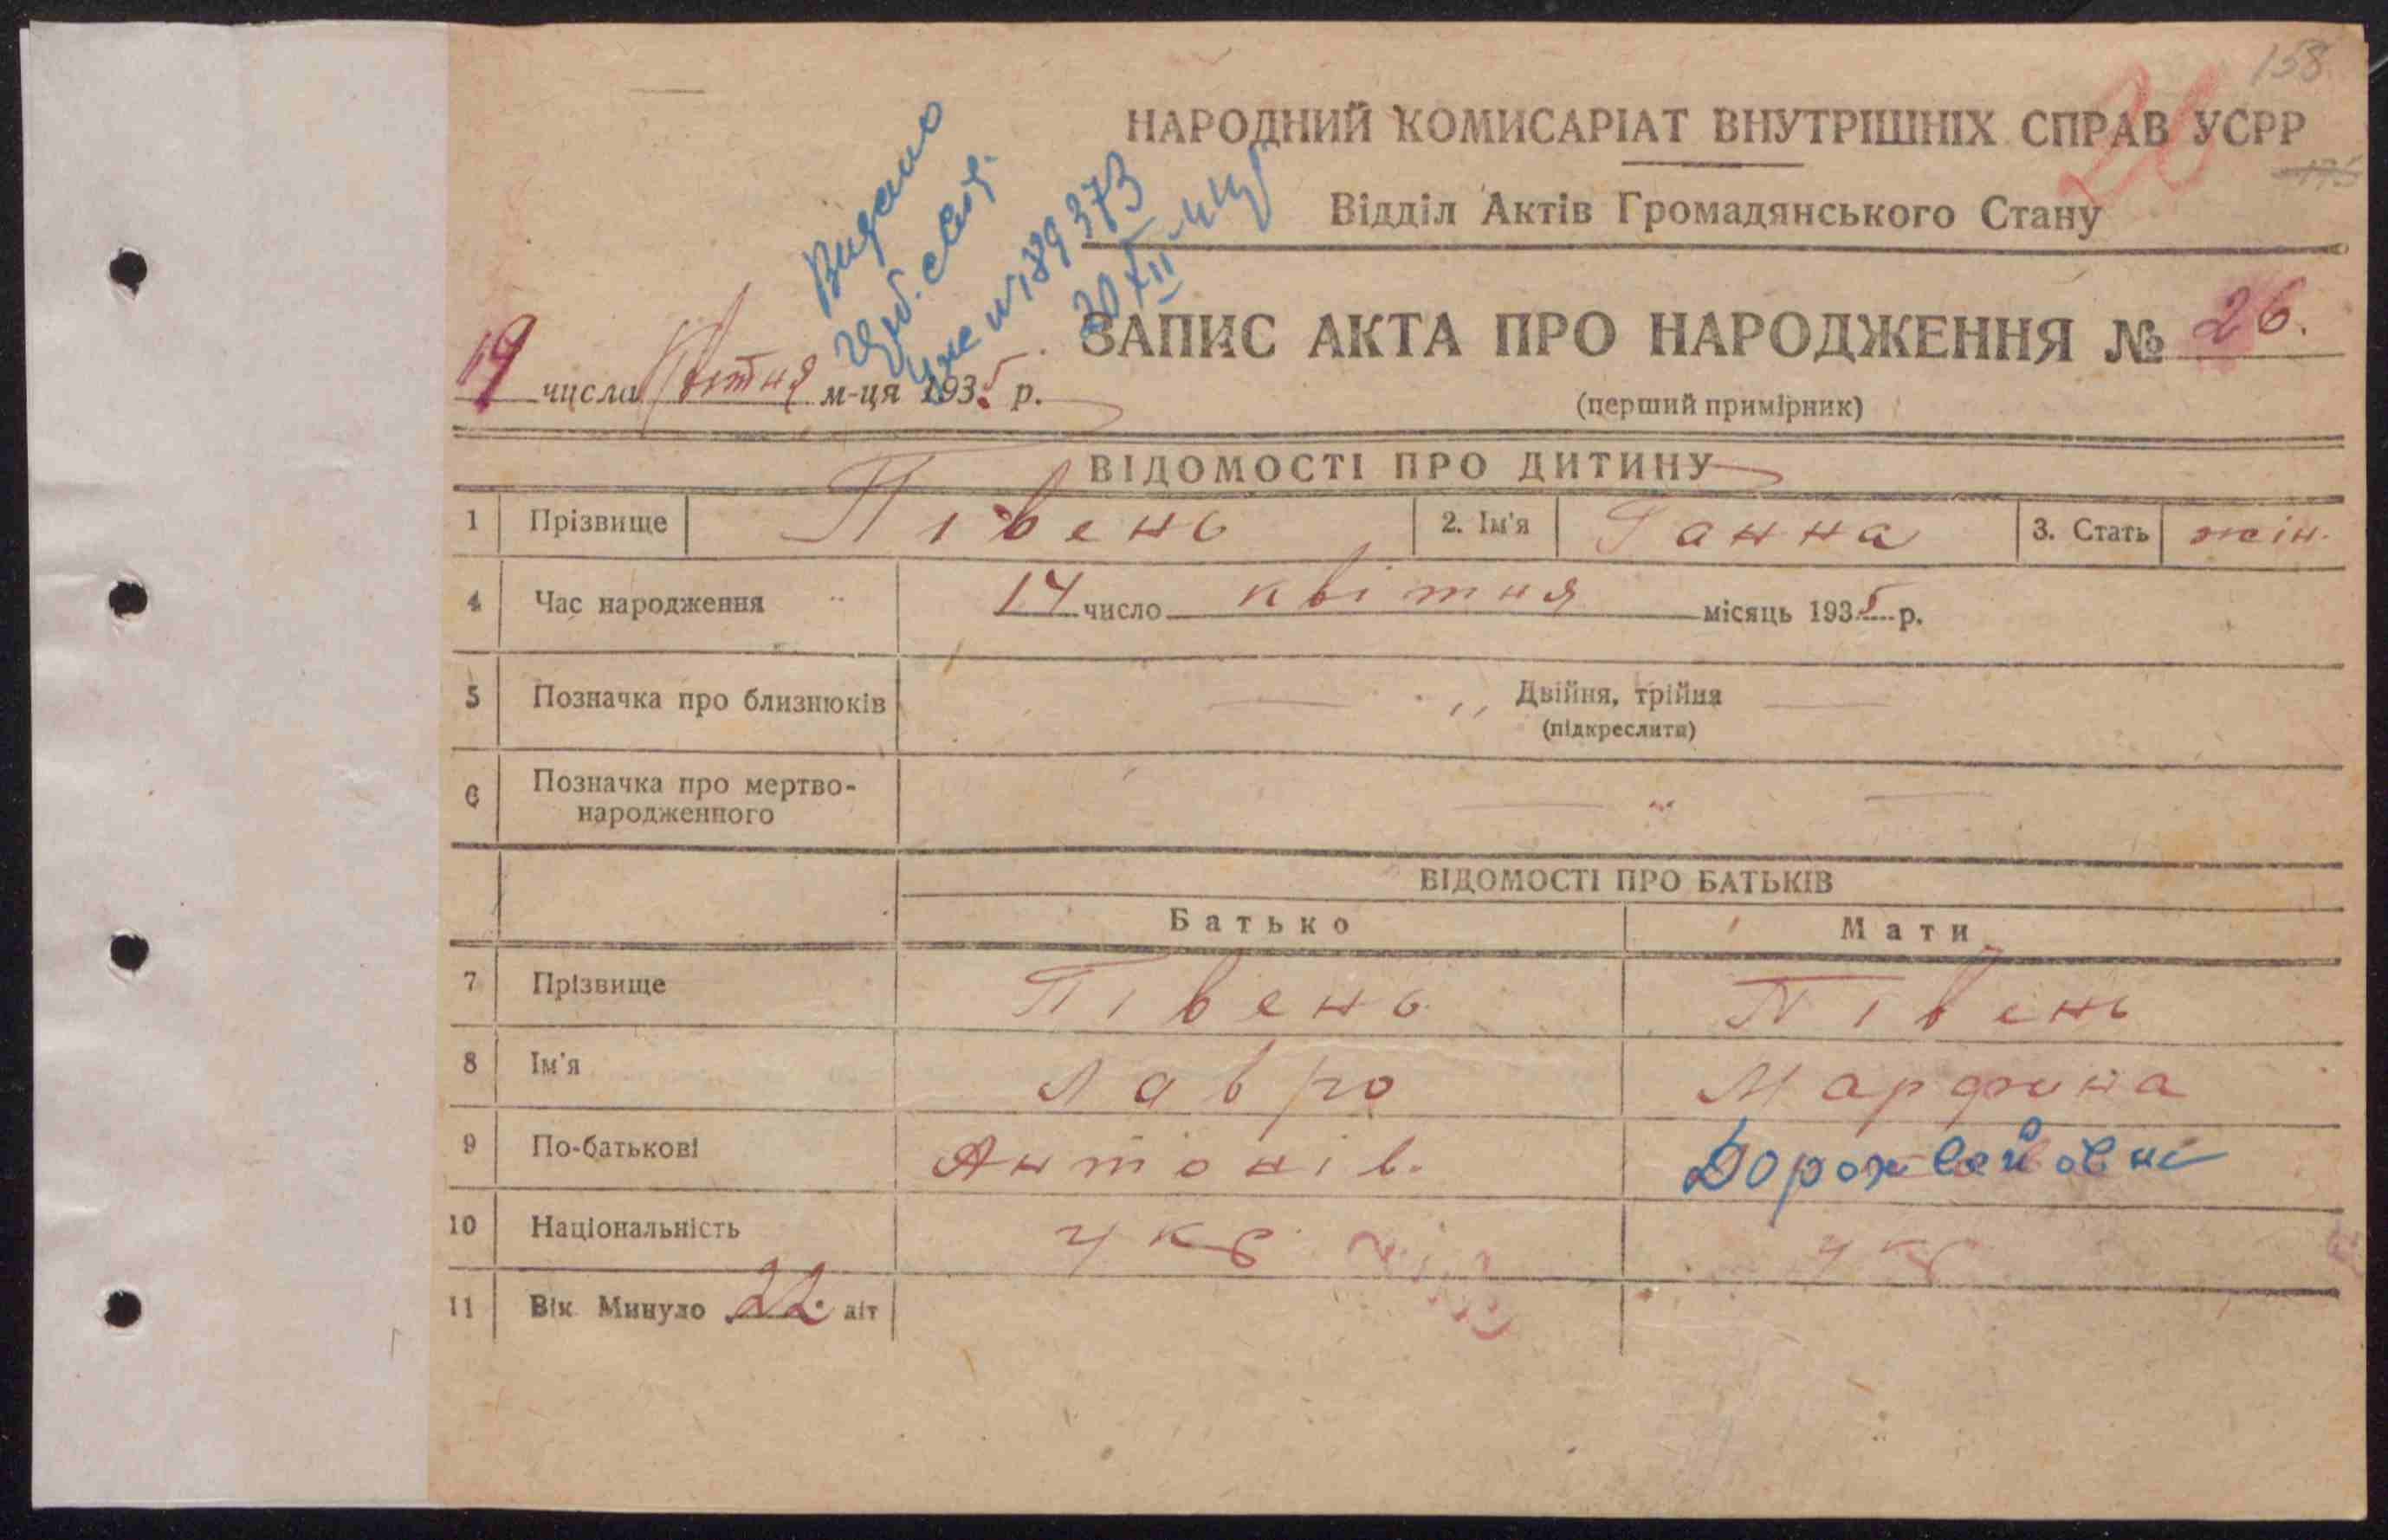 158
НАРОДНИЙ КОМИСАРІАТ ВНУТРІШНІХ СПРАВ УСРР
26
175
Відділ Актів Громадянського Стану
Видано
389373
30 XII 44
ЗАПИС АКТА ПРО НАРОДЖЕННЯ № 26.
19 числа Квітня м-ця 1935 р.
(перший примірник)
ВІДОМОСТІ ПРО ДИТИНУ
1 Прізвище Півень 2. Ім'я Ганна 3. Стать жін.
4 Час народження 14 число квітня місяць 1935 р.
5 Позначка про близнюків Двійня, трійня
(підкреслити)
6 Позначка про мертво-
народженного
ВІДОМОСТІ ПРО БАТЬКІВ
Батько Мати
7 Прізвище Півень Півень
8 Ім'я Лавро Марфина
9 По-батькові Антонів.
10 Національність укр укр
11 Вік Минуло 22 літ